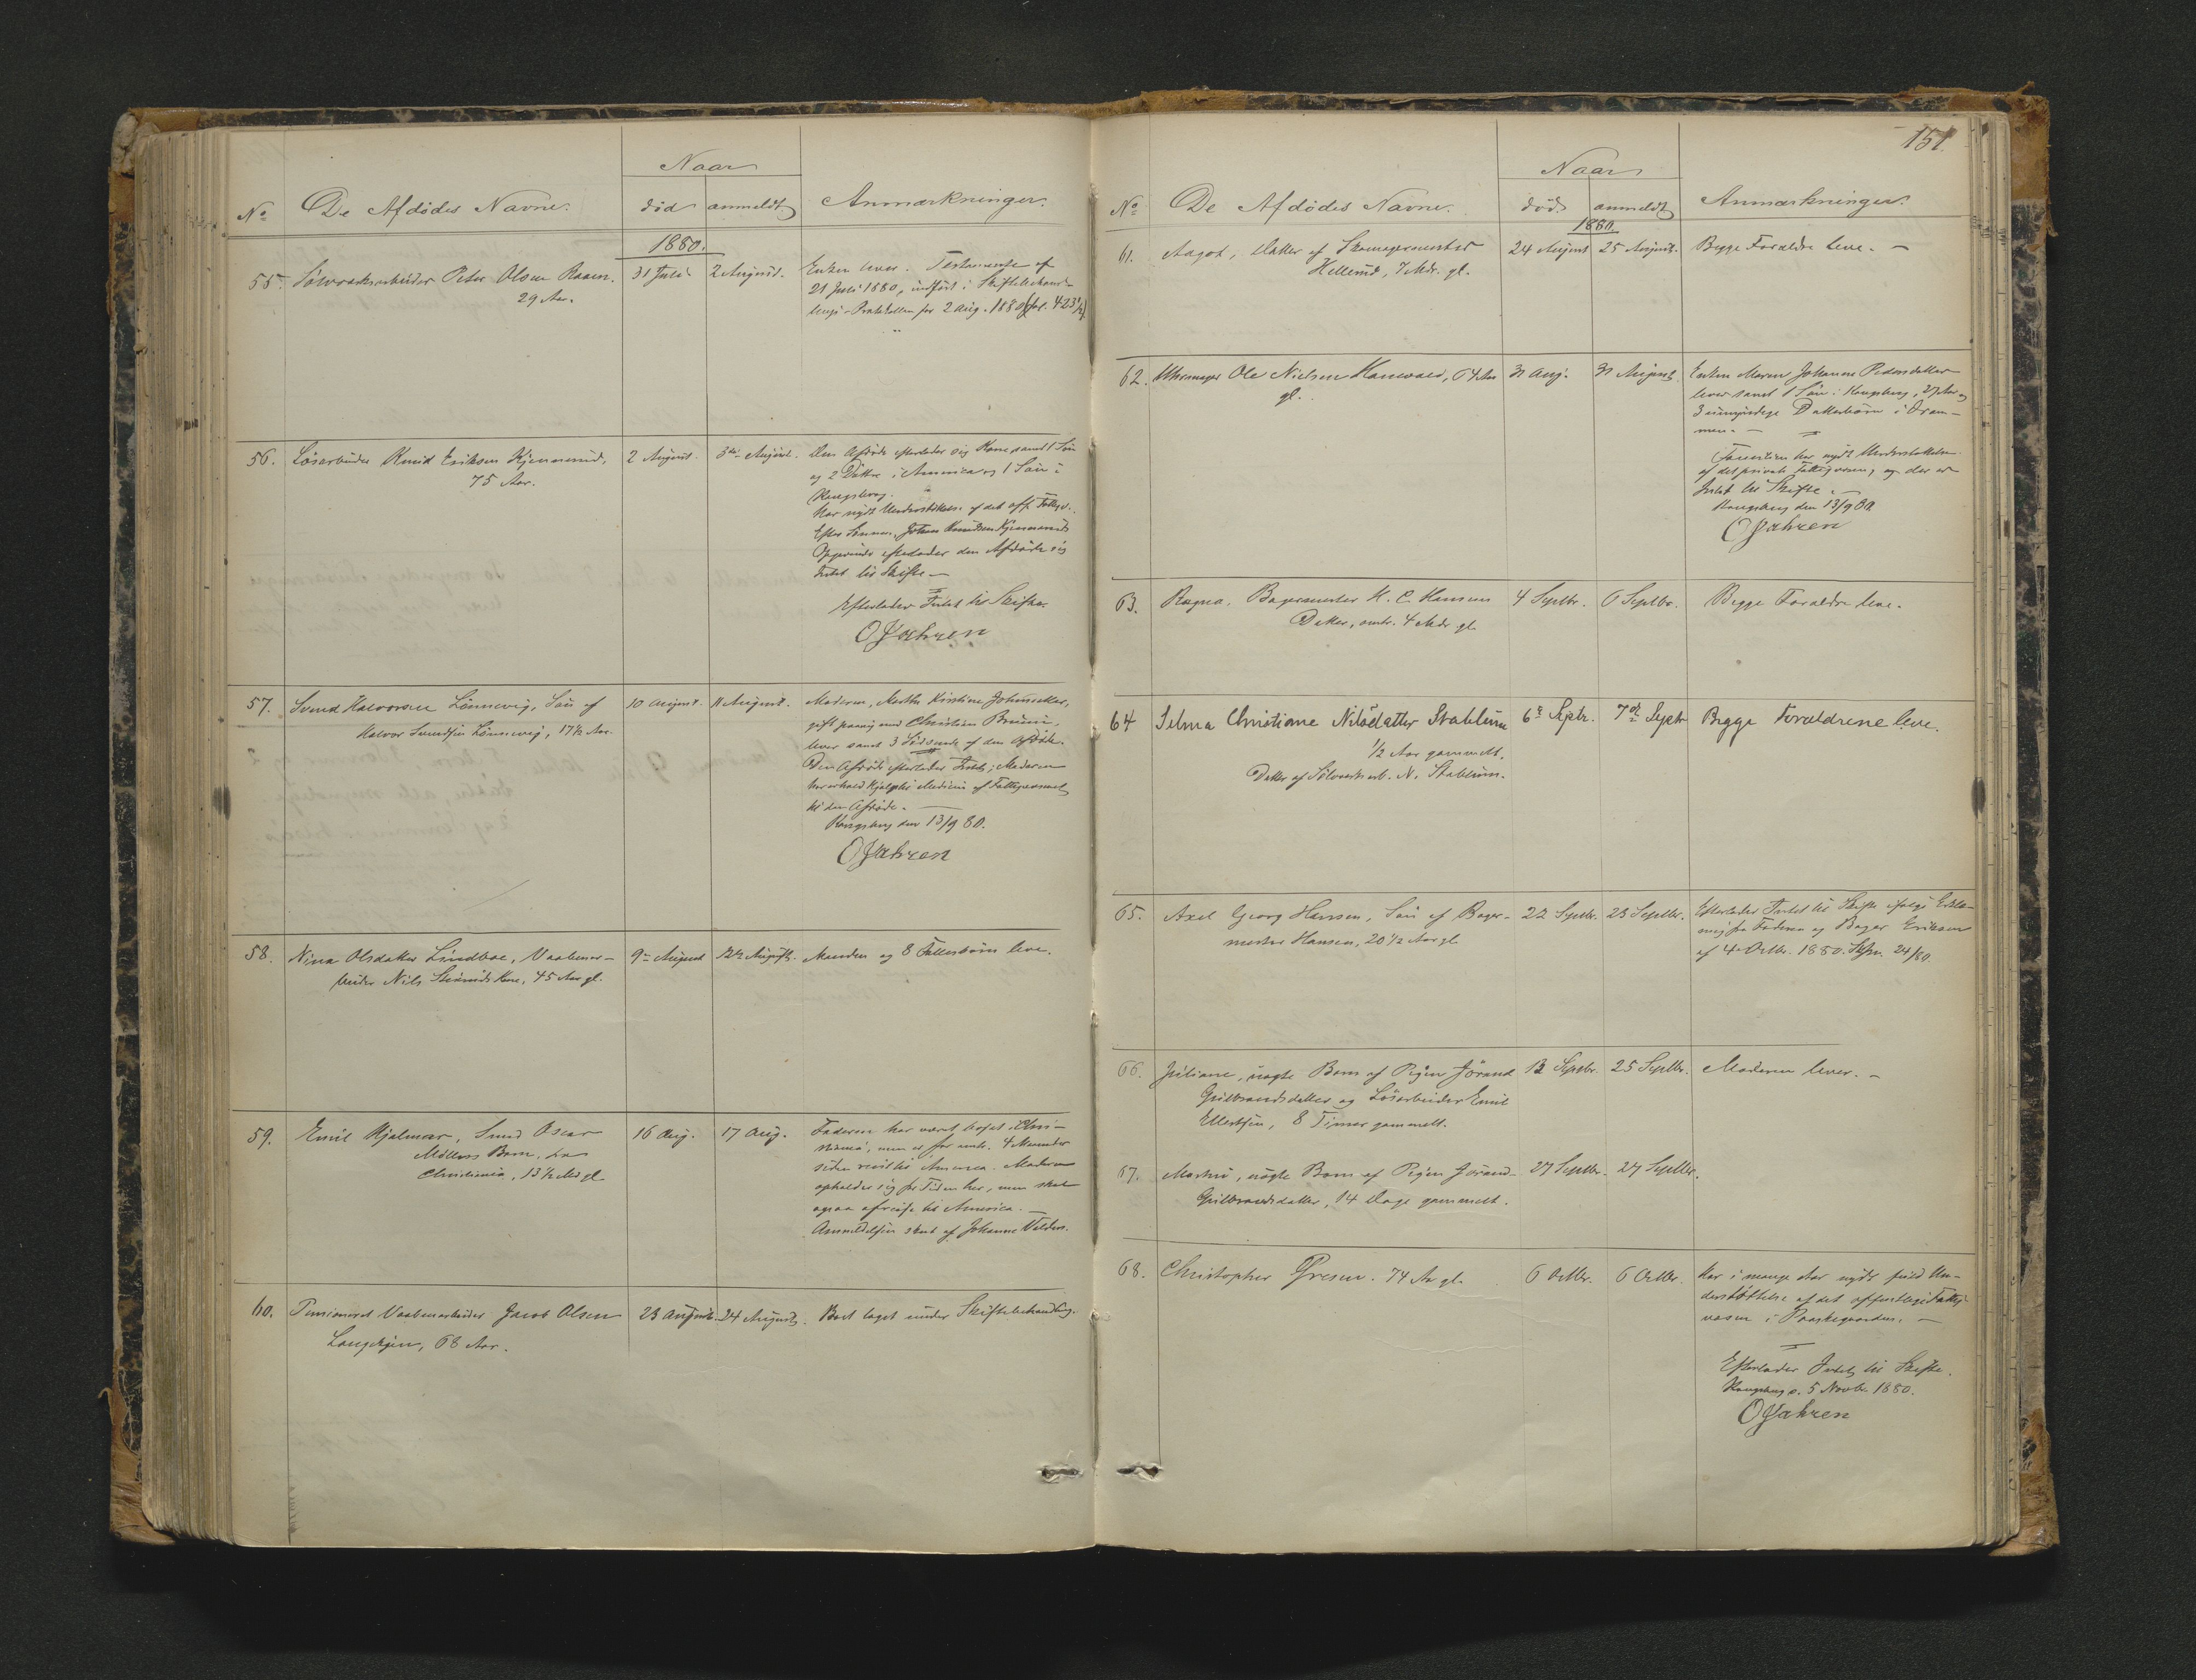 Naar
No De Afdødes Navne. død anmeldt Anmærkninger.
1880.
55. Sølvværksarbeider Peter Olsen Raaen. 31 Juli 2 August. Enken lever. Testamente af
29 Aar. 21 Juli 1880, indført i Skiftebehand-
lings-Protokollen for 2 Aug. 1880 (fol. 423½)
56. Løsarbeider Knud Eriksen Kjennerud, 2 August. 3die August. Den Afdøde efterlader sig Kone samt 1 Søn
75 Aar. og 2 Døttre i America og 1 Søn i
Kongsberg.
Har nydt Understøttelse af det off. Fattigv.
Efter Sønnen, Johan Knudsen Kjenneruds
Opgivende efterlader den Afdøde sig
Intet til Skifte —
Efterlader Intet til Skifte.
O Jahren
57. Svend Halvorsen Lønnevig, Søn af 10 August. 11 August. Moderen, Marthe Kirstine Johnsdatter,
Halvor Svendsen Lønnevig, 17½ Aar. gift paany med Christian Bruun,
lever samt 3 Sødskende af den Afdøde.
Den Afdøde efterlader Intet; Moderen
har erholdt Hjælp til Medicin af Fattigvæsenet
til den Afdøde. —
Kongsberg den 13/9 80.
O Jahren
58. Nina Olsdatter Lindboe, Vaabenar- 9de August 12te August. Manden og 8 Fællesbørn leve.
beider Nils Kone, 45 Aar gl.
59. Emil Hjalmar, Smed Oscar 16 Aug. 17 Aug. Faderen har været bosat i Chri-
Møllers Barn, fra stiania, men er for omtr. 4 Maaneder
Christiania, 13½ Md gl. siden reist til America. Moderen
opholder sig for Tiden her, men skal
ogsaa afreise til America. —
Anmeldelsen skeet af Johanne
60. Pensioneret Vaabenarbeider Jacob Olsen 23 August. 24 August. Boet taget under Skiftebehandling.
68 Aar.
151.
Naar
No De Afdødes Navne. død anmeldt Anmærkninger.
1880
61. Aagot, Datter af Skomagermester 24 August 25 August. Begge Forældre leve. —
Hellerud, 7 Mdr. gl.
62. Uhrmager Ole Nielsen Hanevold, 64 Aar 31 Aug. 31 August. Enken Maren Johanne Pedersdatter
gl. lever samt 1 Søn i Kongsberg, 27 Aar og
3 umyndige Datterbørn i Dram-
men. —
Familien har nydt Understøttelse
af det private Fattigvæsen, og der er
Intet til Skifte. —
Kongsberg den 13/9 80.
O Jahren
63. Ragna, Bagermester H. C. Hansens 4 Septbr. 6 Septbr. Begge Forældre leve.
Datter, omtr. 4 Mdr gl.
64 Selma Christiane Nilsdatter Stablum 6te Septr. 7de Septr Begge Forældrene leve.
1/2 Aar gammelt.
Datter af Sølvværksarb. N. Stablum.
65. Axel Georg Hansen, Søn af Bager- 22 Septbr. 23 Septbr. Efterlader Intet til Skifte ifølge Erklæ-
mester Hansen, 20½ Aar gl. ring fra Faderen og Bager Eriksen
af 4 Octbr. 1880. 24/80.
66. Juliane, uægte Barn af Pigen Jørand 12 Septbr. 25 Septbr. Moderen lever. —
Gulbrandsdatter og Løsarbeider Emil
Ellertsen, 8 Timer gammelt.
67. Marthe, uægte Barn af Pigen Jørand 27 Septbr. 27 Septbr.
Gulbrandsdatter, 14 Dage gammelt.
68. Christopher 74 Aar gl. 6 Octbr. 6 Octbr. Har i mange Aar nydt fuld Un-
derstøttelse af det offentlige Fattig-
væsen i Præstegaarden. —
Efterlader Intet til Skifte.
Kongsberg d. 5 Novbr. 1880.
O Jahren